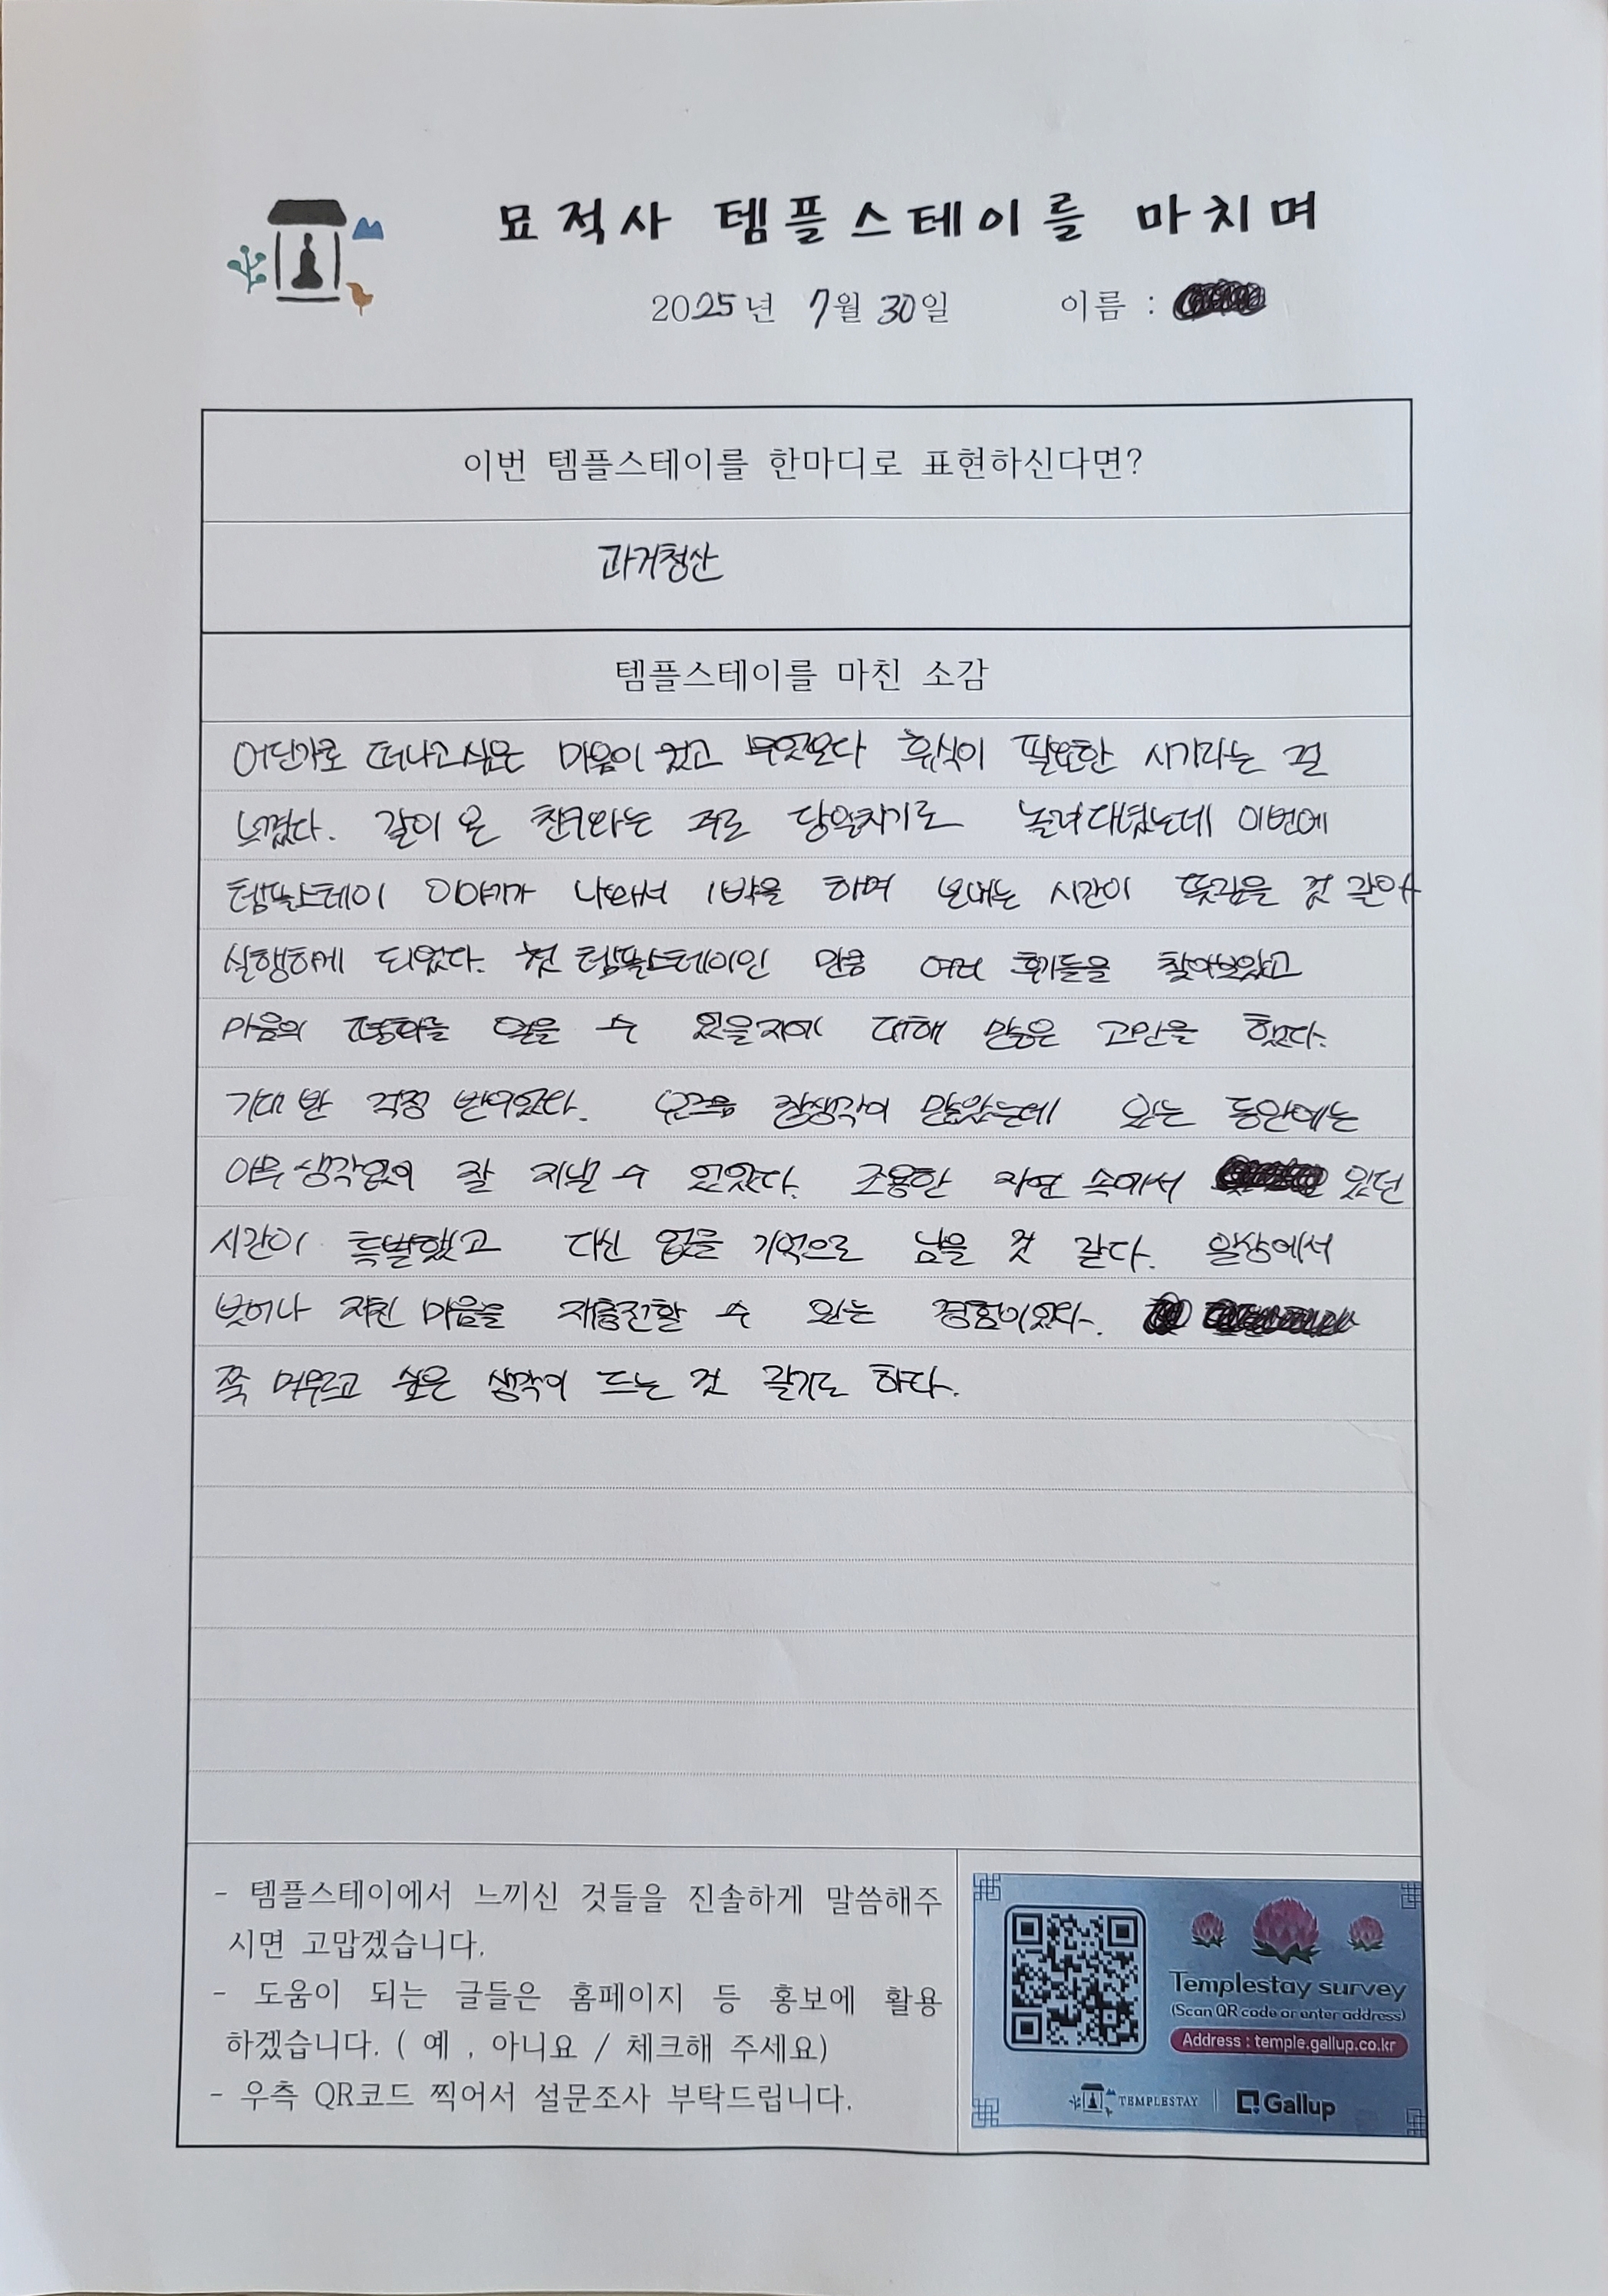 묘적사 템플스테이를 마치며
2025년 7월 30일 이름 :
이번 템플스테이를 한마디로 표현하신다면?
과거청산
템플스테이를 마친 소감
어딘가로 떠나고싶은 마음이 있고 무엇보다 휴식이 필요한 시기라는 걸
느꼈다. 같이 온 친구와는 주로 당일치기로 놀러다녔는데 이번에
템플스테이 이야기가 나와서 1박을 하며 보내는 시간이 뜻깊을 것 같아
실행하게 되었다. 첫 템플스테이인 만큼 여러 후기들을 찾아보았고
마음의 평화를 얻을 수 있을지에 대해 많은 고민을 했다.
기대 반 걱정 반이었다. 요즘 잡생각이 많았는데 있는 동안에는
아무 생각없이 잘 지낼 수 있었다. 조용한 자연 속에서 있던
시간이 특별했고 다신 없을 기억으로 남을 것 같다. 일상에서
벗어나 지친 마음을 재충전할 수 있는 경험이었다.
쭉 머무르고 싶은 생각이 드는 것 같기도 하다.
- 템플스테이에서 느끼신 것들을 진솔하게 말씀해주
시면 고맙겠습니다.
- 도움이 되는 글들은 홈페이지 등 홍보에 활용
하겠습니다. ( 예 , 아니요 / 체크해 주세요)
- 우측 QR코드 찍어서 설문조사 부탁드립니다.
Templestay survey
(Scan QR code or enter address)
Address : temple.gallup.co.kr
TEMPLESTAY Gallup